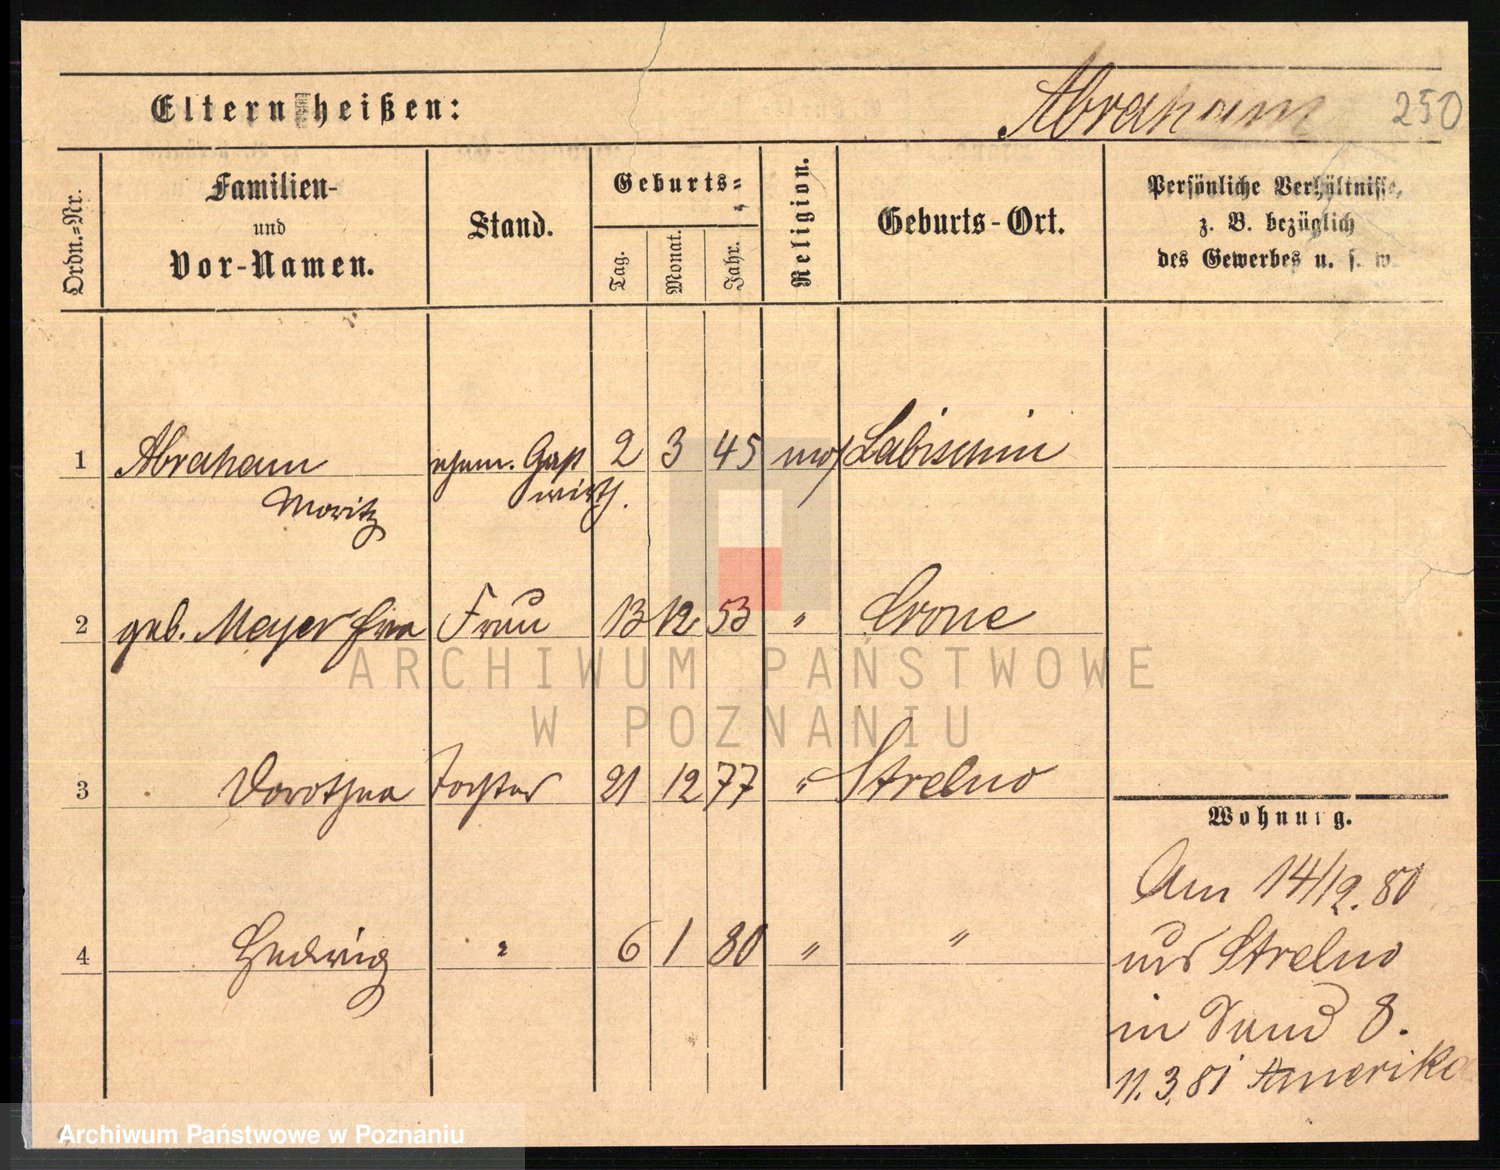 Eltern heißen:
Abraham 250
Ordn.=Nr.
Familien-
und
Vor-Namen.
Stand.
Geburts=
Tag.
Monat.
Jahr.
Religion.
Geburts-Ort.
Persönliche Verhältnisse,
z. B. bezüglich
des Gewerbes u. s. w.
1 Abraham ehem. Gast 2 3 45 mos Labischin
Moritz wirth.
2 geb. Meyer Eva Frau 13 12 53 " Crone
3 Dorothea Tochter 21 12 77 " Strelno
4 Hedwig " 6 1 80 " "
Wohnung.
Am 14/12. 80
aus Strelno
in Sand 8.
11. 3. 81 Amerika
ARCHIWUM PAŃSTWOWE
W POZNANIU
Archiwum Państwowe w Poznaniu